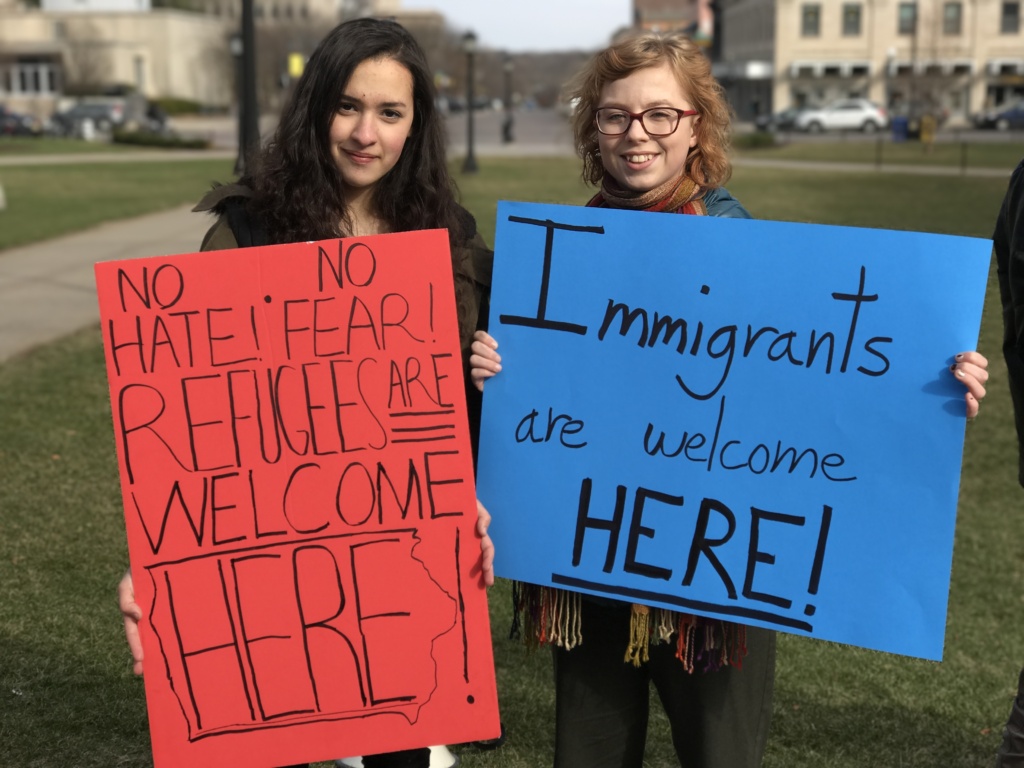 NO NO
HATE! FEAR!
REFUGEES ARE
WELCOME
HERE!
Immigrants
are welcome
HERE!